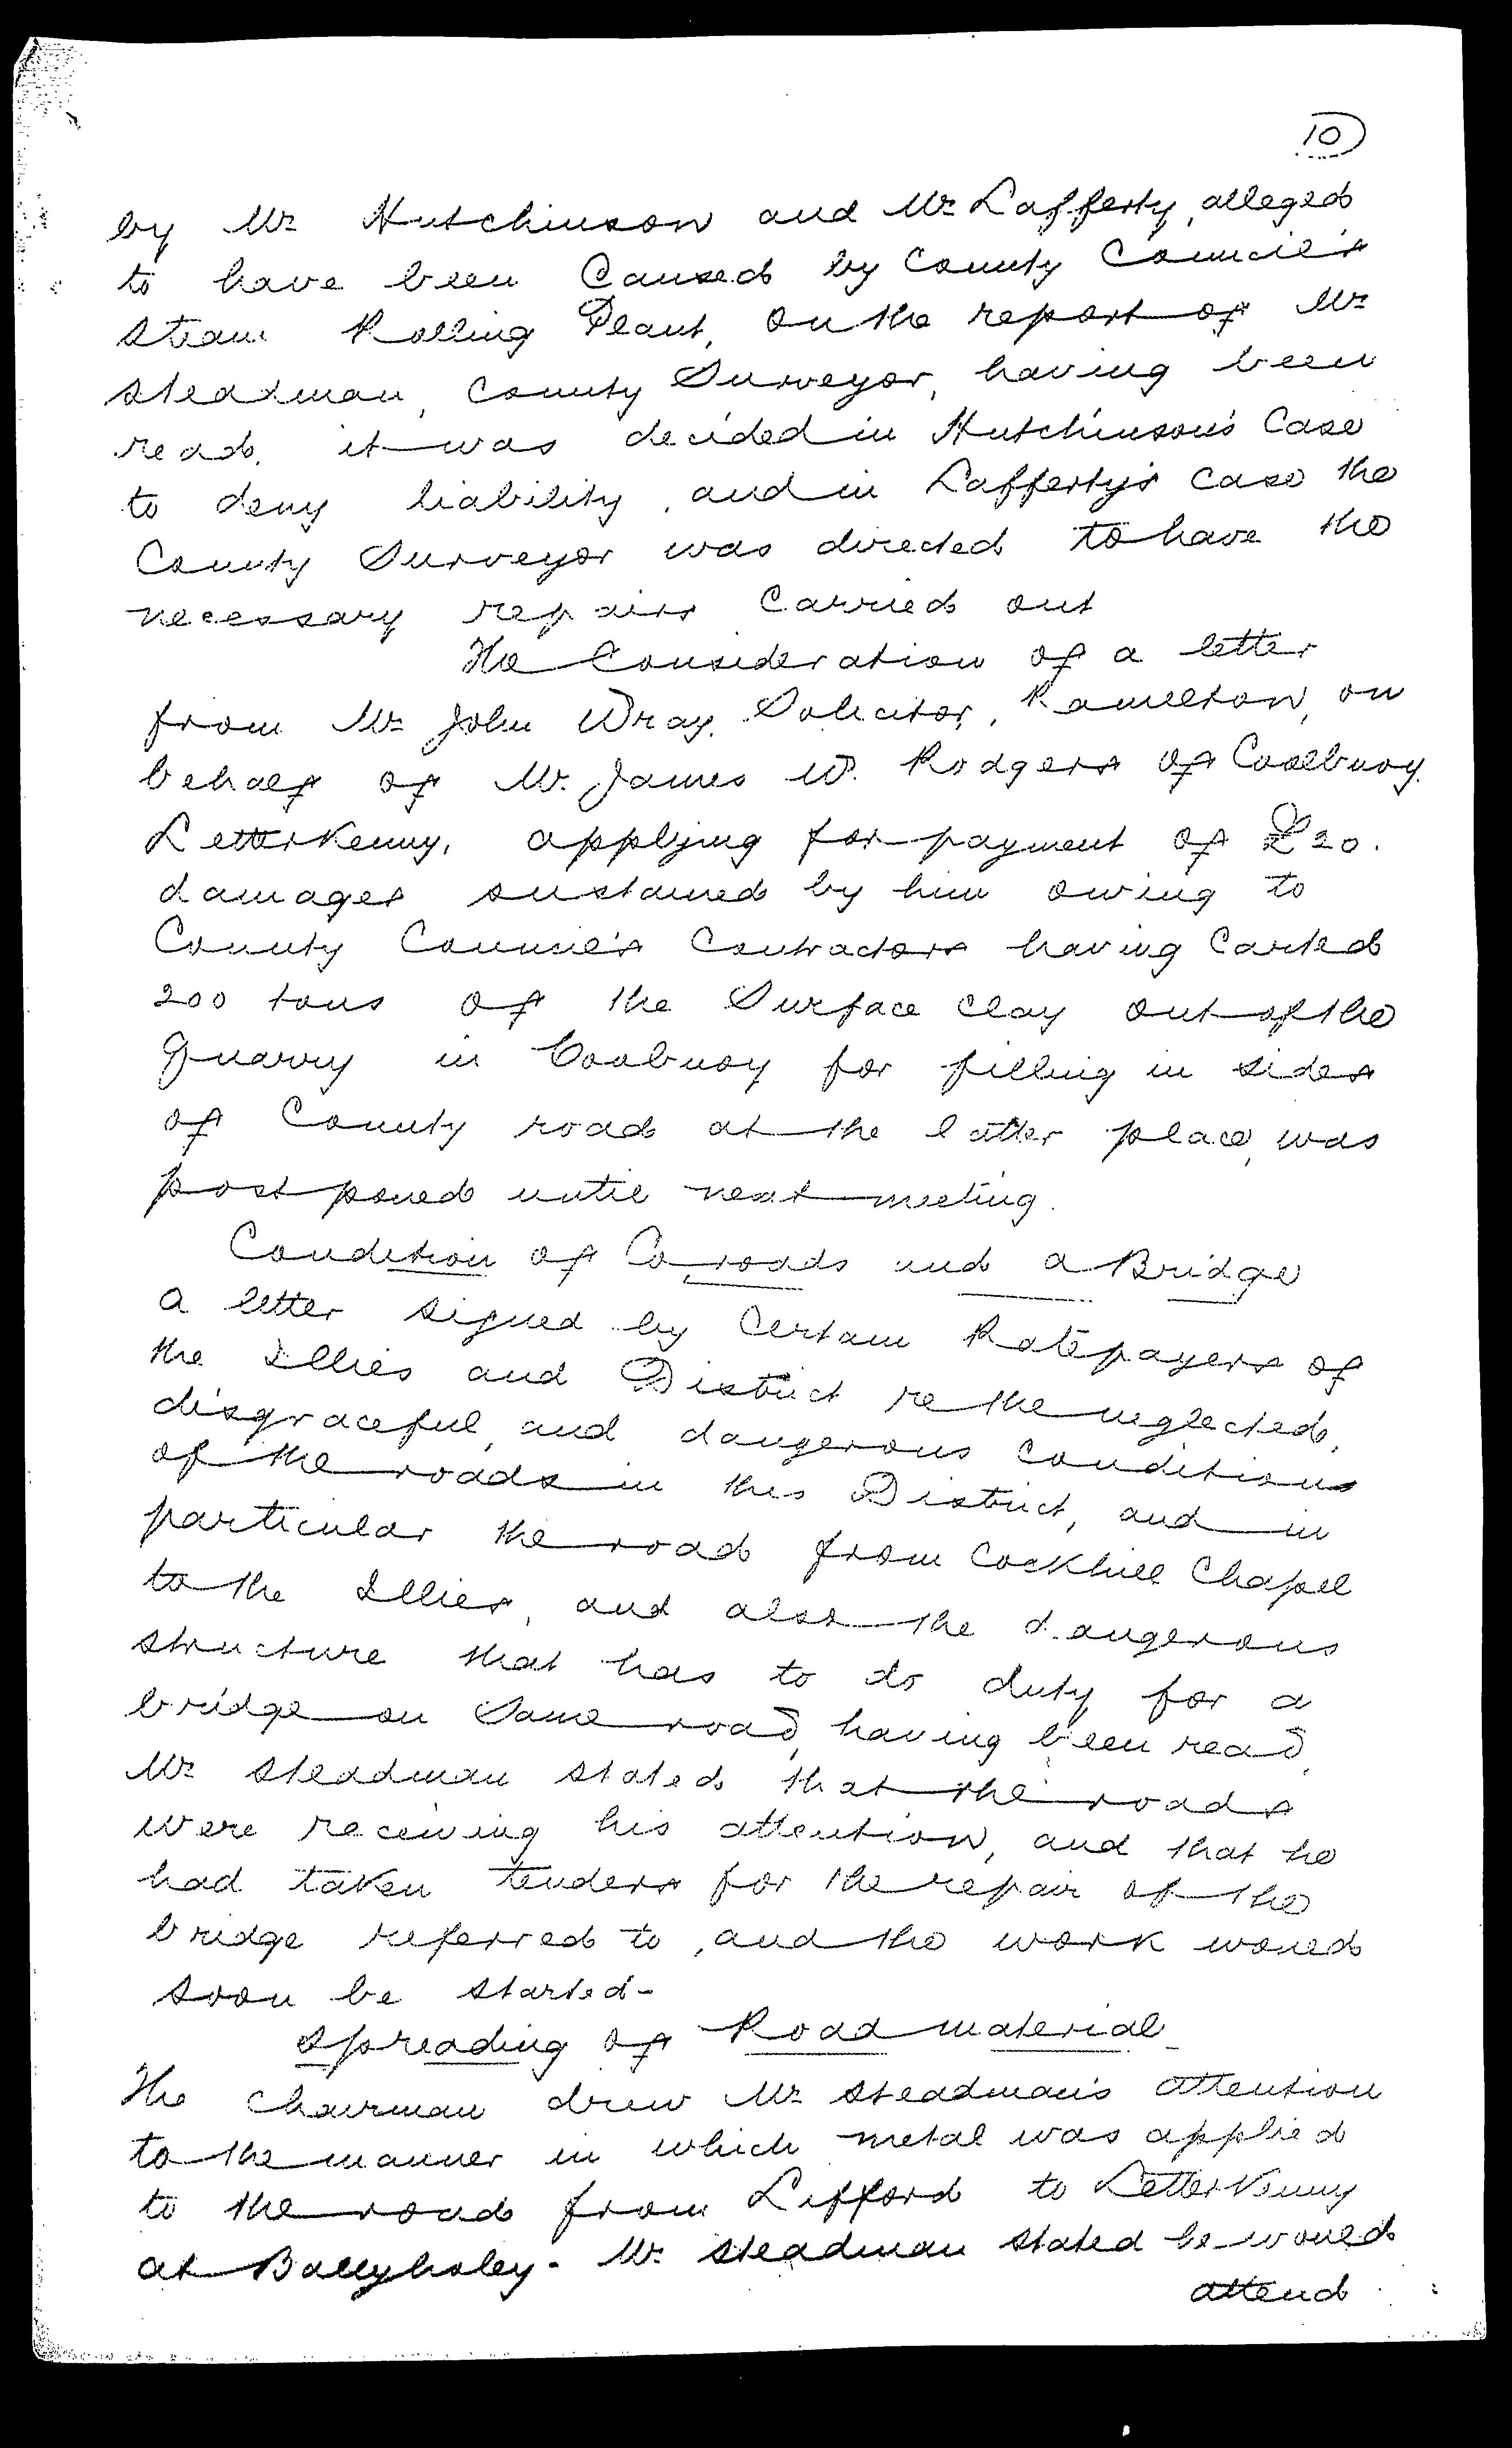 10
by Mr Hutchinson and Mr Lafferty, alleged
to have been Caused by County Council's
Steam Rolling Plant, on the report of Mr
Steadman, County Surveyor, having been
read, it was decided in Hutchinson's Case
to deny liability, and in Lafferty's case the
County Surveyor was directed to have the
necessary repairs Carried out
The Consideration of a letter
from Mr John Wray, Solicitor, Ramelton, on
behalf of Mr. James W. Rodgers of Coolbuoy
Letterkenny, applying for payment of £20.
damages sustained by him owing to
County Council's Contractors having Carted
200 tons of the Surface Clay out of the
Quarry in Coolbuoy for filling in sides
of County road at the latter place, was
postponed until next meeting.
Condition of Co. roads and a Bridge
A letter signed by Certain Ratepayers of
the Illies and District re the neglected,
disgraceful, and dangerous conditions
of the roads in this District, and in
particular the road from Cockhill Chapel
to the Illies, and also the dangerous
structure that has to do duty for a
bridge on Same road, having been read,
Mr Steadman stated that the roads
were receiving his attention, and that he
had taken tenders for the repair of the
bridge referred to, and the work would
soon be started -
Spreading of Road material
The Chairman drew Mr Steadman's attention
to the manner in which metal was applied
to the road from Lifford to Letterkenny
at Ballyholey - Mr. Steadman stated he would
attend